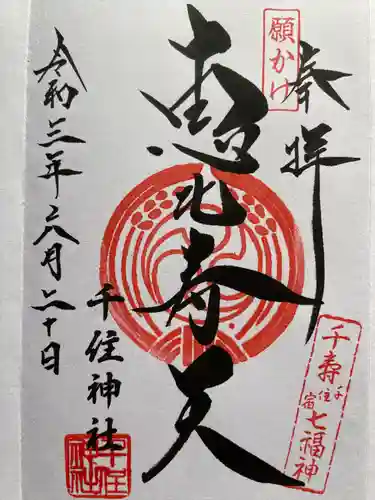 願かけ
奉拝
恵比寿天
千寿七福神
千住宿
千住神社
令和三年六月二十日
千住神社